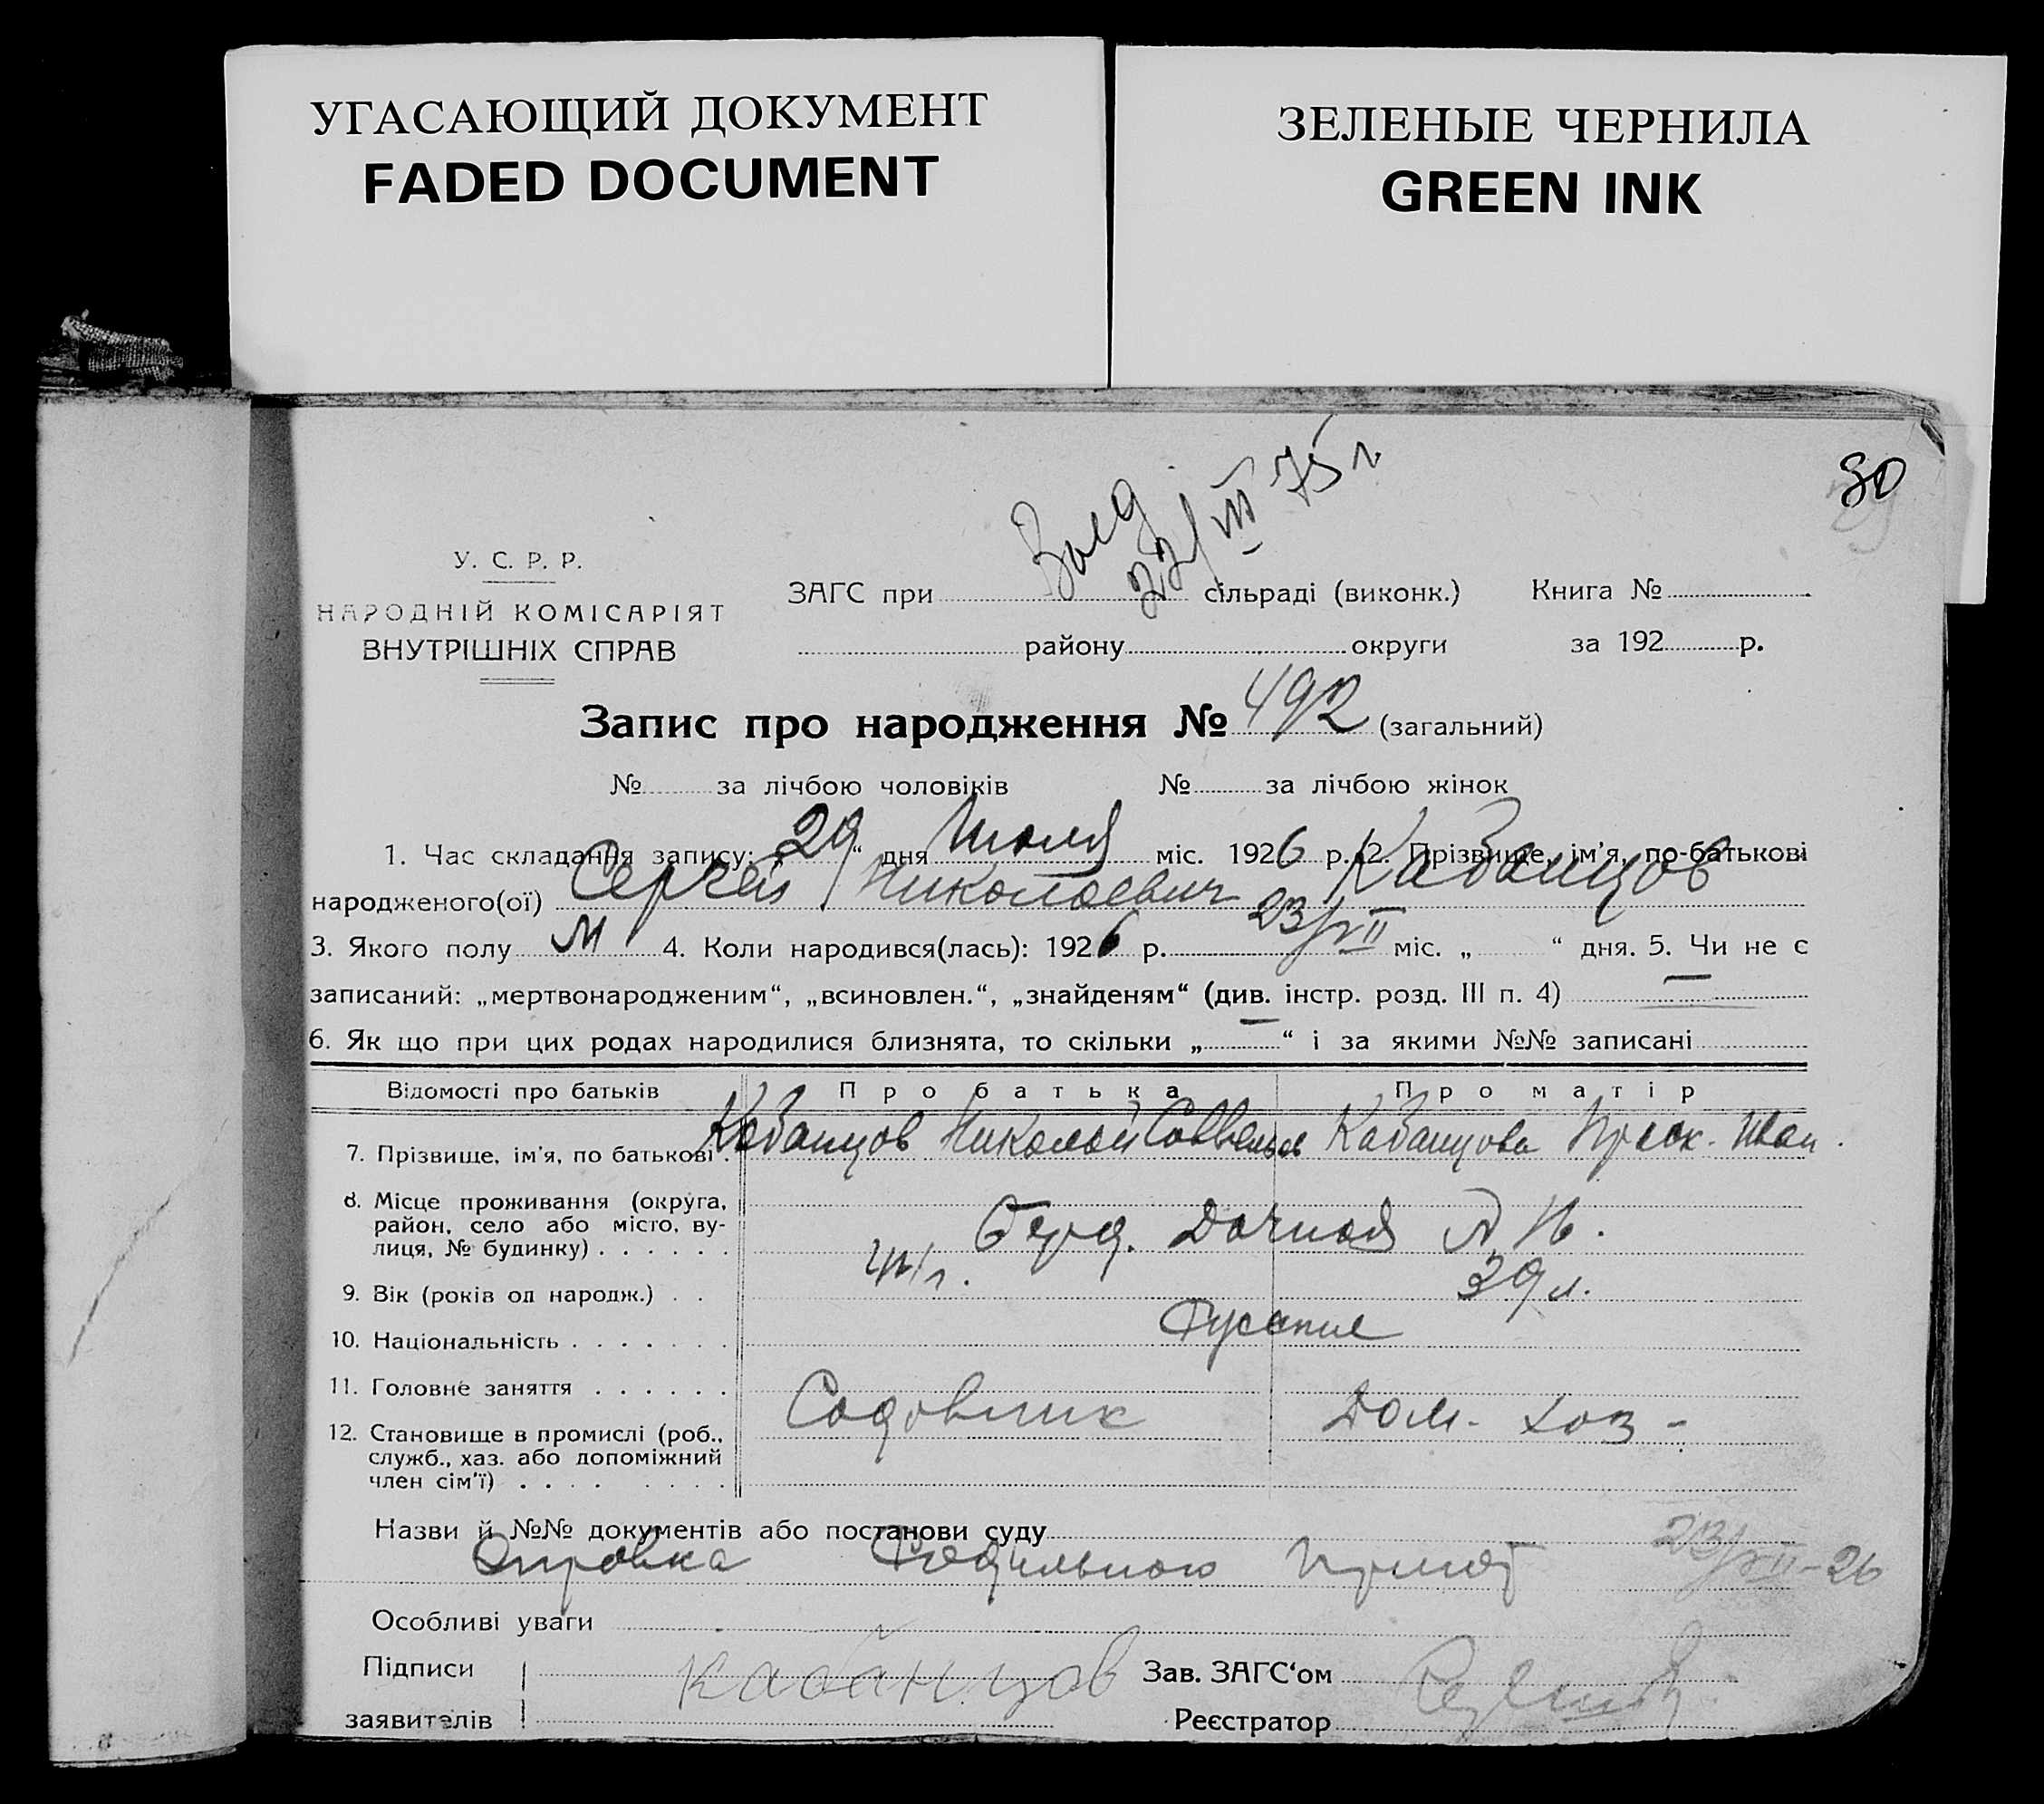 УГАСАЮЩИЙ ДОКУМЕНТ
FADED DOCUMENT
ЗЕЛЕНЫЕ ЧЕРНИЛА
GREEN INK
80
22/VIII 75 г.
У. С. Р. Р.
НАРОДНІЙ КОМІСАРІЯТ
ВНУТРІШНІХ СПРАВ
ЗАГС при сільраді (виконк.) Книга №
району округи за 192 р.
Запис про народження № 492 (загальний)
№ за лічбою чоловіків № за лічбою жінок
1. Час складання запису: „ 29 “ дня Июля міс. 1926 р. 2. Прізвище, ім'я, по-батькові
народженого(ої) Сергей Николаевич Кабанцов
3. Якого полу М 4. Коли народився(лась): 1926 р. 23/VII міс. „ “ дня. 5. Чи не є
записаний: „мертвонародженим“, „всиновлен.“, „знайденям“ (див. інстр. розд. III п. 4) —
6. Як що при цих родах народилися близнята, то скільки „ — “ і за якими №№ записані
Відомості про батьків Про батька Про матір
7. Прізвище, ім'я, по батькові . Кабанцов Николай Кабанцова Праск. Иван.
8. Місце проживання (округа,
район, село або місто, ву-
лиця, № будинку) . . . . . . Берд. Дачная
9. Вік (років од народж.) . . 39 л.
10. Національність . . . . . . . Русские
11. Головне заняття . . . . . . Садовник Дом. хоз-
12. Становище в промислі (роб.,
служб., хаз. або допоміжний
член сім'ї) . . . . . . . .
Назви й №№ документів або постанови суду
Справка Родильного Приюта 23/VII-26
Особливі уваги
Підписи Кабанцов Зав. ЗАГС‘ом
заявителів Реєстратор